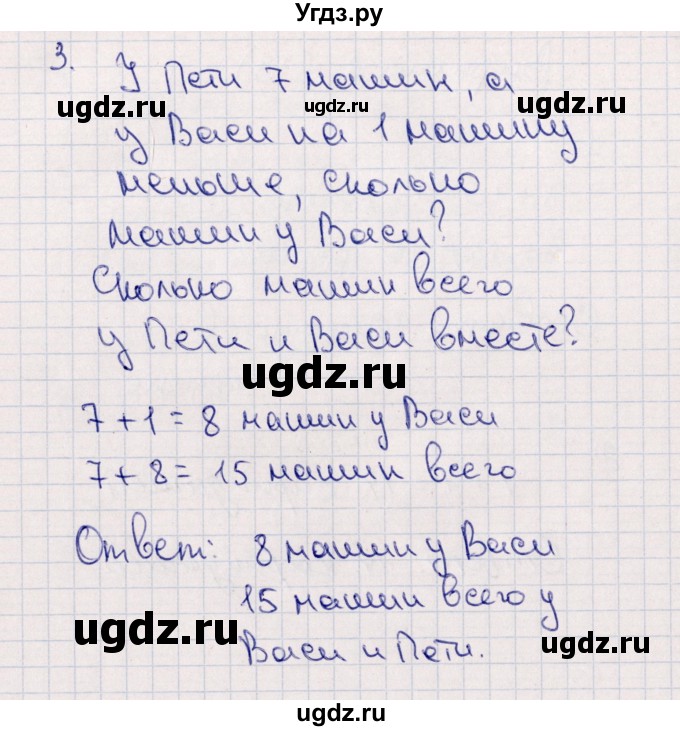 Угдз.ру
3. У Пети 7 машин, а
ugdz.ru ugdz.ru ugdz.ru
у Васи на 1 машину
меньше, сколько
ugdz.ru ugdz.ru
машин у Васи?
Сколько машин всего
у Пети и Васи вместе?
ugdz.ru
7 + 1 = 8 машин у Васи
7 + 8 = 15 машин всего
Ответ: 8 машин у Васи
15 машин всего у
ugdz.ru ugdz.ru
Васи и Пети.
ugdz.ru